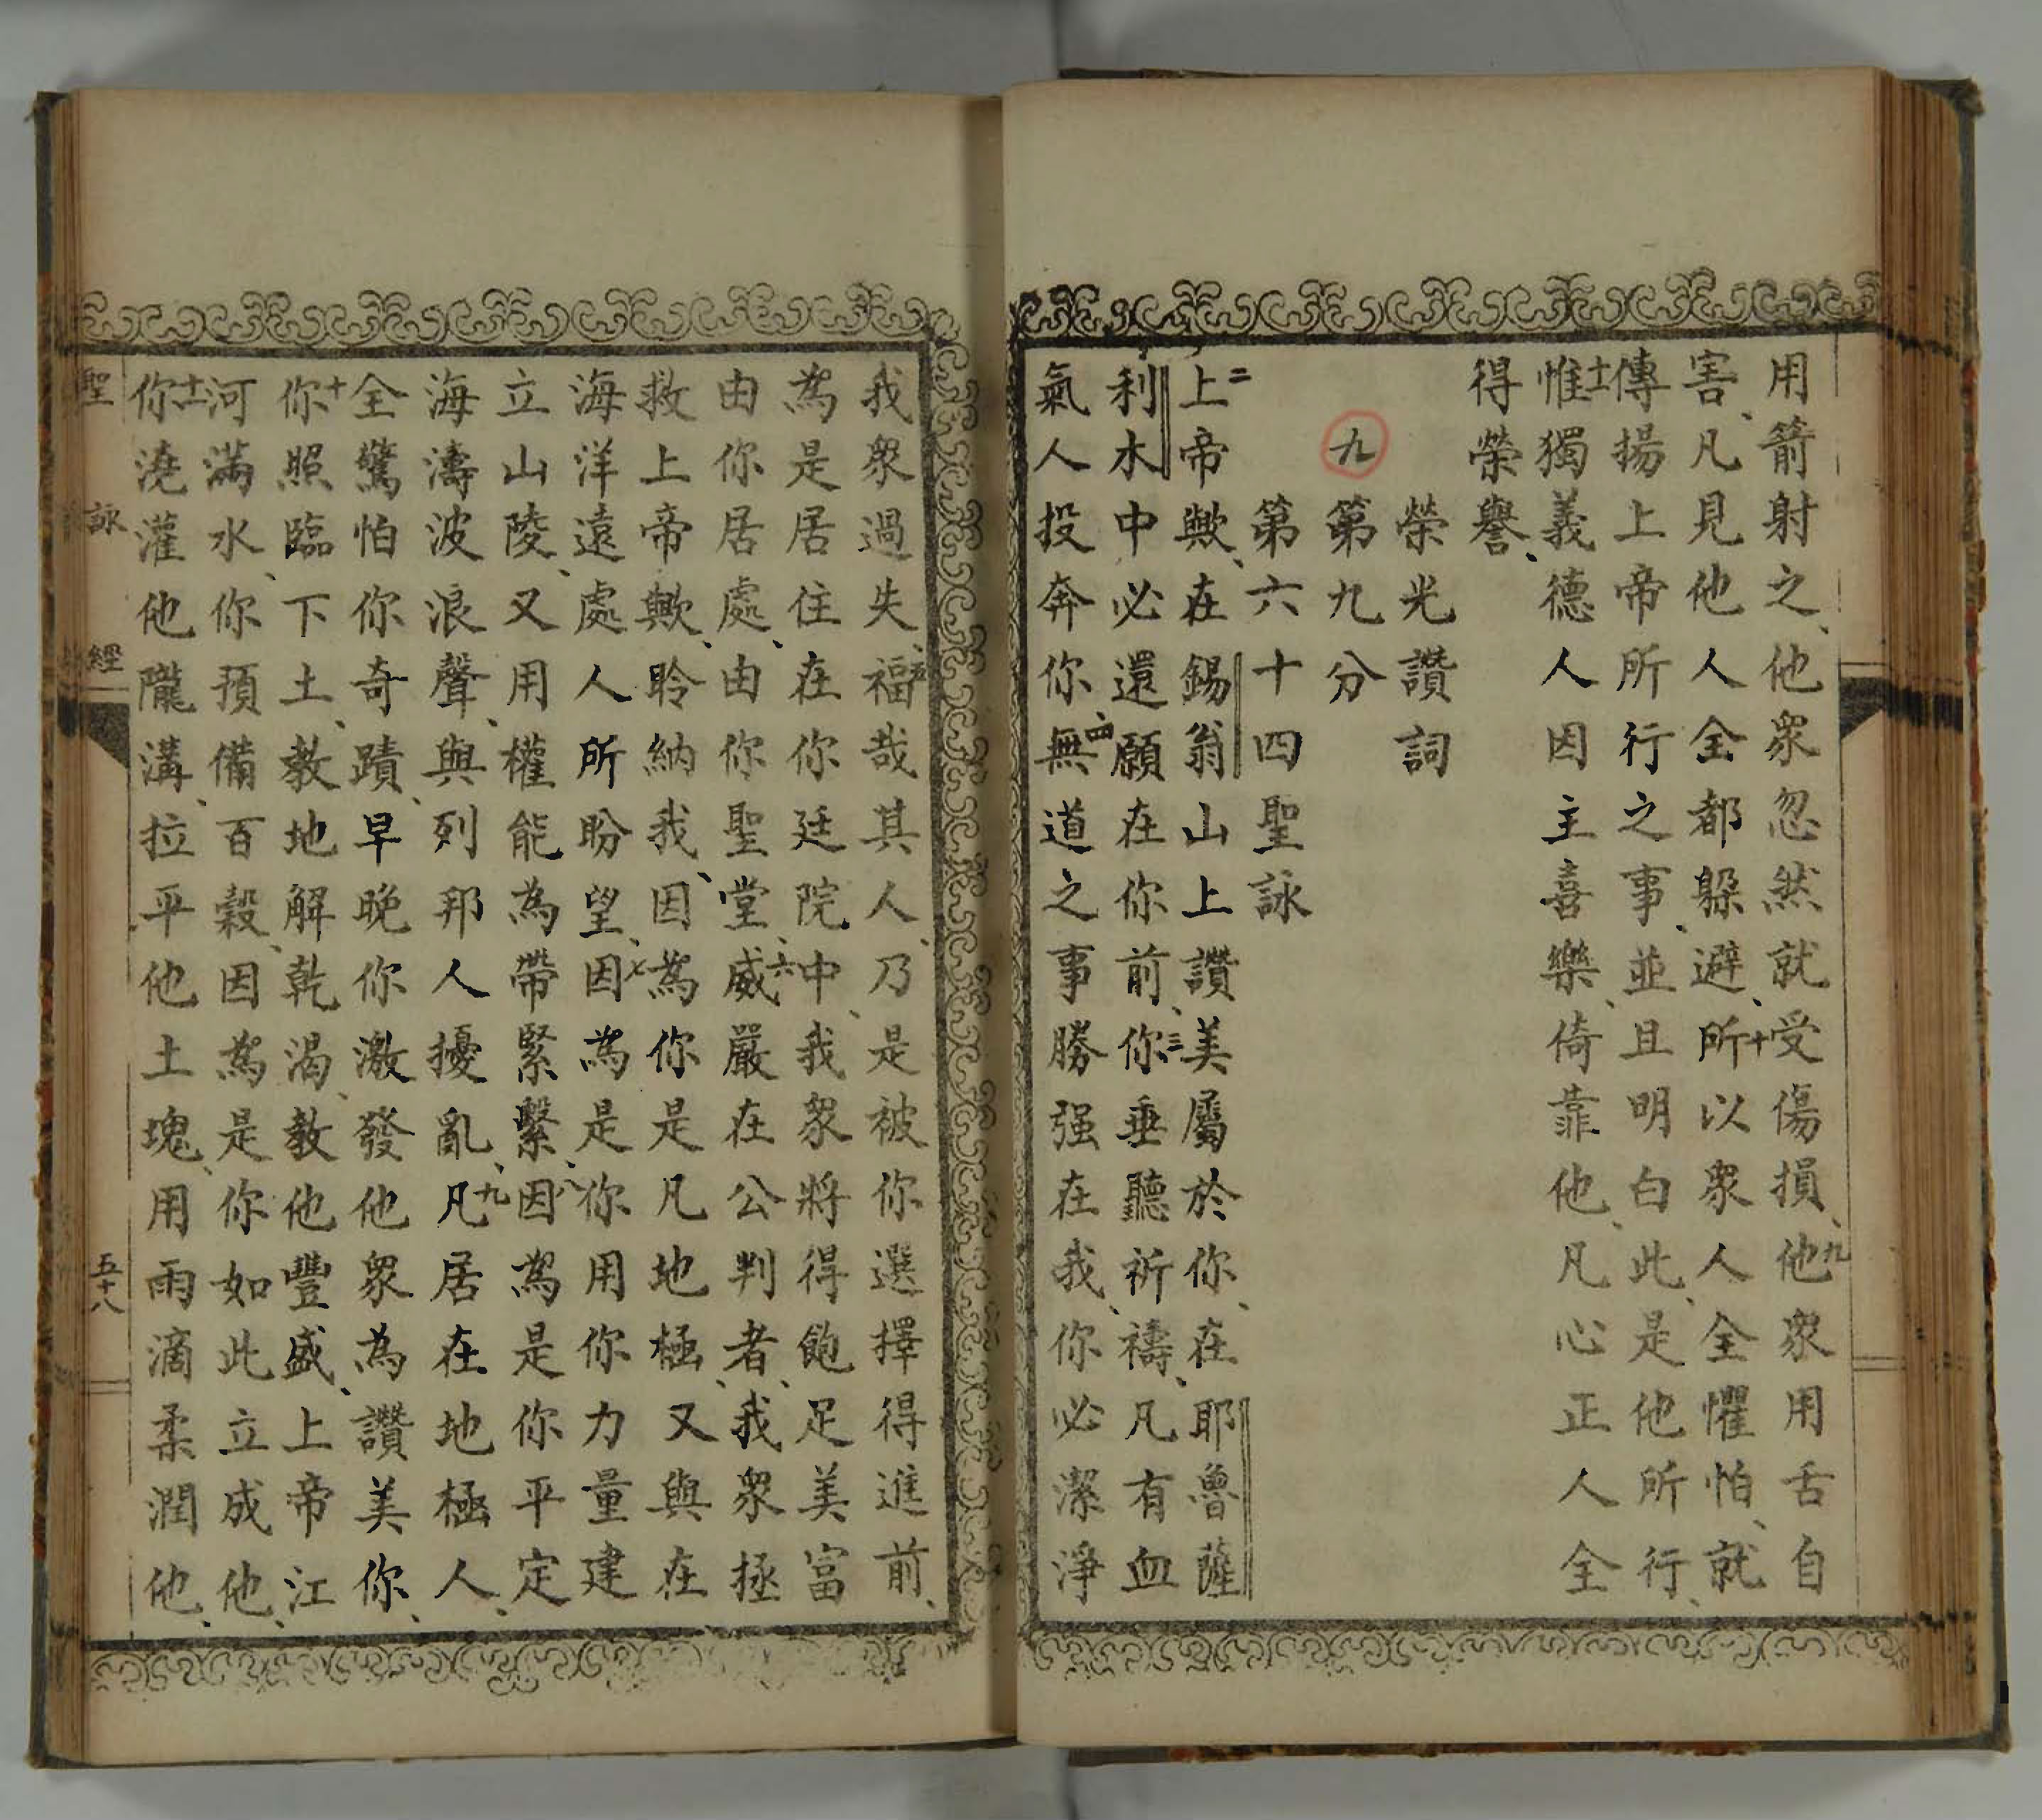 用箭射之、他衆忽然就受傷損、九他衆用舌自
害、凡見他人全都躲避、十所以衆人全懼怕、就
傳揚上帝所行之事、並且明白此、是他所行、
十一惟獨義德人因主喜樂、倚靠他、凡心正人全
得榮譽、
榮光讚詞
九 第九分
第六十四聖詠
二上帝歟、在錫翁山上讚美屬於你、在耶魯薩
利木中必還願在你前、三你垂聽祈禱、凡有血
氣人投奔你、四無道之事勝强在我、你必潔淨
我衆過失、五福哉其人、乃是被你選擇得進前、
為是居住在你廷院中、我衆將得飽足美富
由你居處、由你聖堂、六威嚴在公判者、我衆拯
救上帝歟、聆納我、因為你是凡地極、又與在
海洋遠處人所盼望、七因為是你用你力量建
立山陵、又用權能為帶緊繫、八因為是你平定
海濤波浪聲、與列邦人擾亂、九凡居在地極人、
全驚怕你奇蹟、早晚你激發他衆為讚美你、
十你照臨下土、教地解乾渴、教他豐盛、上帝江
河滿水、你預備百穀、因為是你如此立成他、
十一你澆灌他隴溝、拉平他土塊、用雨滴柔潤他、
聖詠經
五十八